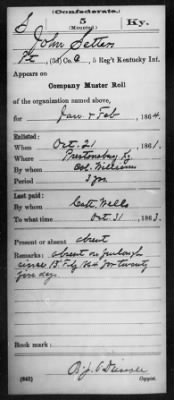 (Confederate.)
S 5 Ky.
(Mounted.)
John Setters
Pt, (3d) Co. C, 5 Reg't Kentucky Inf.
Appears on
Company Muster Roll
of the organization named above,
for Jan & Feb, 1864.
Enlisted:
When Oct. 21, 1861.
Where Prestonsburg Ky.
By whom Col. Williams
Period 3 yrs.
Last paid:
By whom Capt. Wells
To what time Oct. 31, 1863.
Present or absent absent
Remarks: absent on furlough
since 15 Feby 1864 for twenty
five days.
Book mark:
(642)
Copyist.